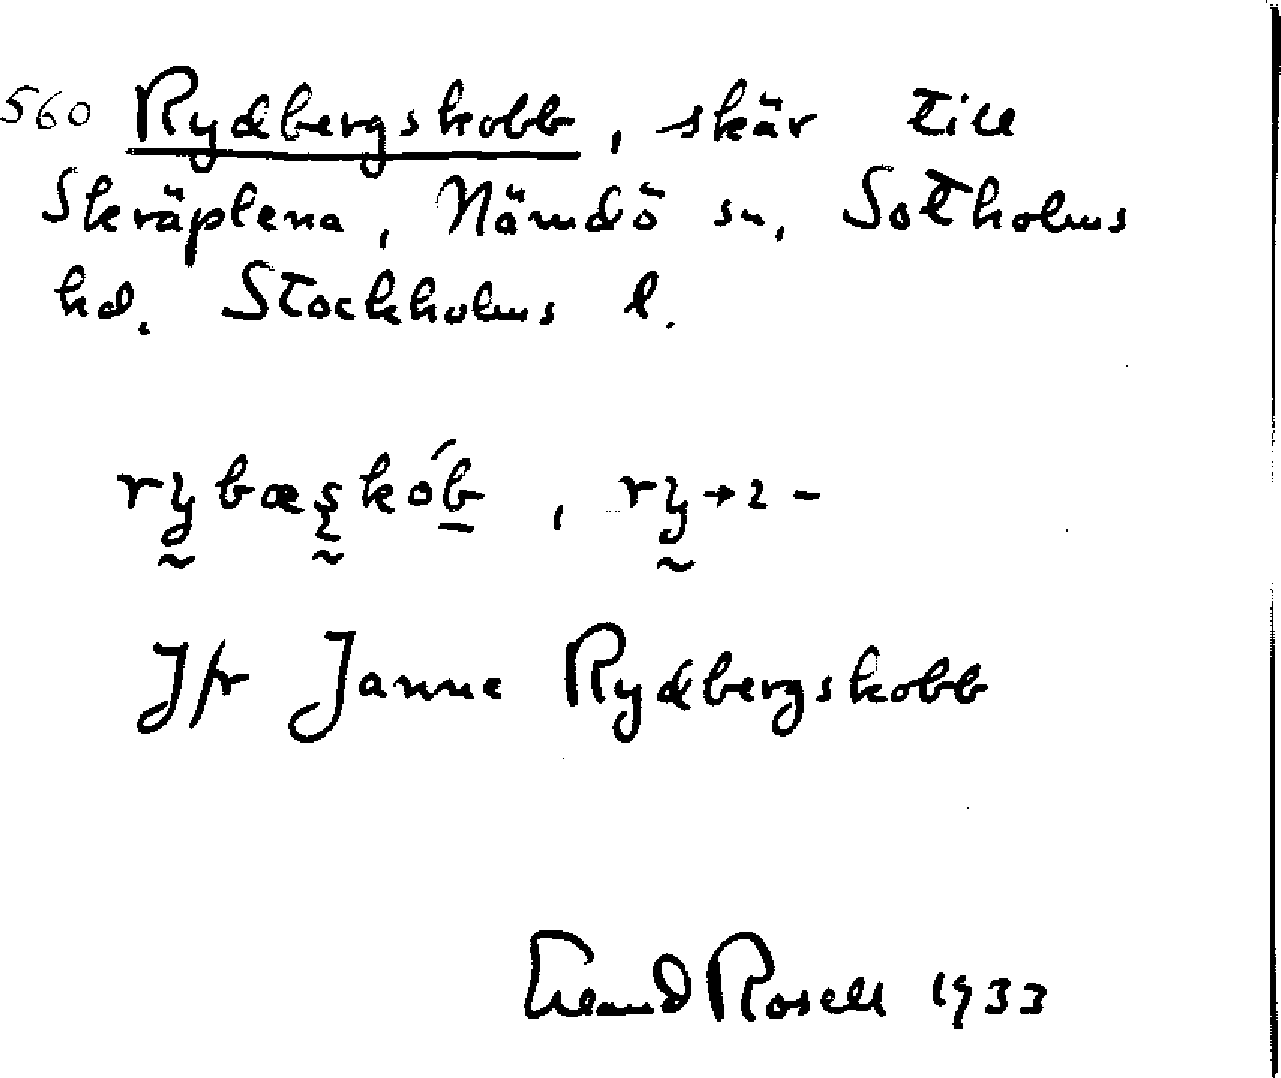 560 Rydbergskobb, skär till
Skräplena, Nämdö sn, Sotholms
hd. Stockholms l.
rybæskób, ry→2-
Jfr Janne Rydbergskobb
Erland Rosell 1933